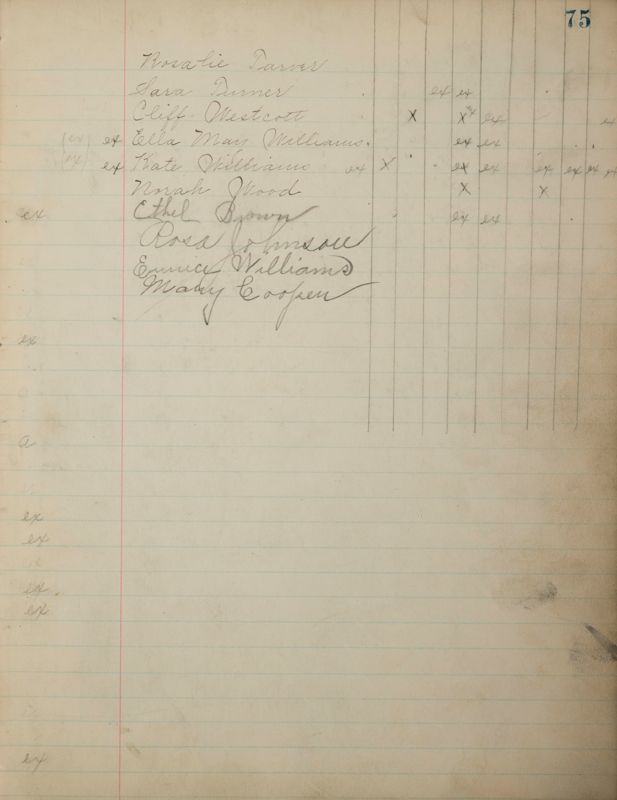 75
Rosalie Tarver
Sara Turner ex ex
Cliff Westcott X X ex ex ex
(ex) ex Ella May Williams. ex ex
(ex) ex Kate Williams ex X ex ex ex ex ex ex
Norah Wood X X
ex Ethel Brown ex ex
Rosa Johnson
Eunice Williams
Mary Cooper
ex
a
ex
ex
ex
ex
ex